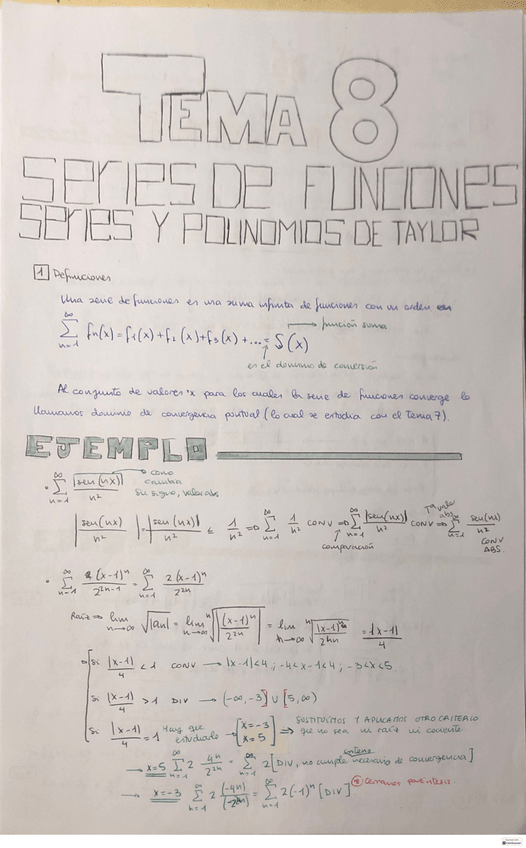 TEMA 8
SERIES DE FUNCIONES
SERIES Y POLINOMIOS DE TAYLOR
1 Definiciones
Una serie de funciones es una suma infinita de funciones con un orden
∞ Σ n=1 fn(x) = f1(x) + f2(x) + f3(x) + ... = S(x) → función suma
es el dominio de conversión
Al conjunto de valores "x para los cuales la serie de funciones converge lo
llamamos dominio de convergencia puntual (lo cual se estudia con el Tema 7).
EJEMPLO
• ∞ Σ n=1 |sen(nx)| / n² → como cambia su signo, valor abs.
|sen(nx) / n²| = |sen(nx)| / n² ≤ 1/n² ⇒ ∞ Σ n=1 1/n² CONV ⇒ ∞ Σ n=1 |sen(nx)| / n² CONV ⇒ ∞ Σ n=1 sen(nx) / n² CONV ABS.
comparación
Tª valor abs.
• ∞ Σ n=1 (x-1)ⁿ / 2²ⁿ⁻¹ = ∞ Σ n=1 2(x-1)ⁿ / 2²ⁿ
Raíz ⇒ lim n→∞ √|an| = lim n→∞ ⁿ√|(x-1)ⁿ / 2²ⁿ| = lim n→∞ ⁿ√|x-1|ⁿ / 2²ⁿ = |x-1| / 4
Si |x-1| / 4 < 1 CONV → |x-1| < 4 ; -4 < x-1 < 4 ; -3 < x < 5
Si |x-1| / 4 > 1 DIV → (-∞, -3] ∪ [5, ∞)
Si |x-1| / 4 = 1 Hay que estudiarlo → [x = -3 x = 5] ⇒ SUSTITUIMOS Y APLICAMOS OTRO CRITERIO que no sea ni raíz ni cociente
→ x=5 ∞ Σ n=1 2 4ⁿ / 2²ⁿ = ∞ Σ n=1 2 [DIV, no cumple criterio necesario de convergencia]
→ x=-3 ∞ Σ n=1 2 (-4ⁿ) / (-2²ⁿ) = ∞ Σ n=1 2(-1)ⁿ [DIV]